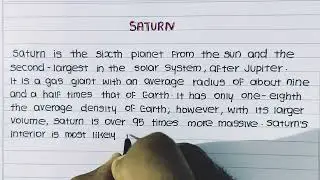 SATURN
Saturn is the sixth planet from the sun and the
second-largest in the solar system, after Jupiter.
It is a gas giant with an average radius of about nine
and a half times that of Earth. It has only one-eighth
the average density of Earth; however, with its larger
volume, saturn is over 95 times more massive. Saturn's
interior is most likely